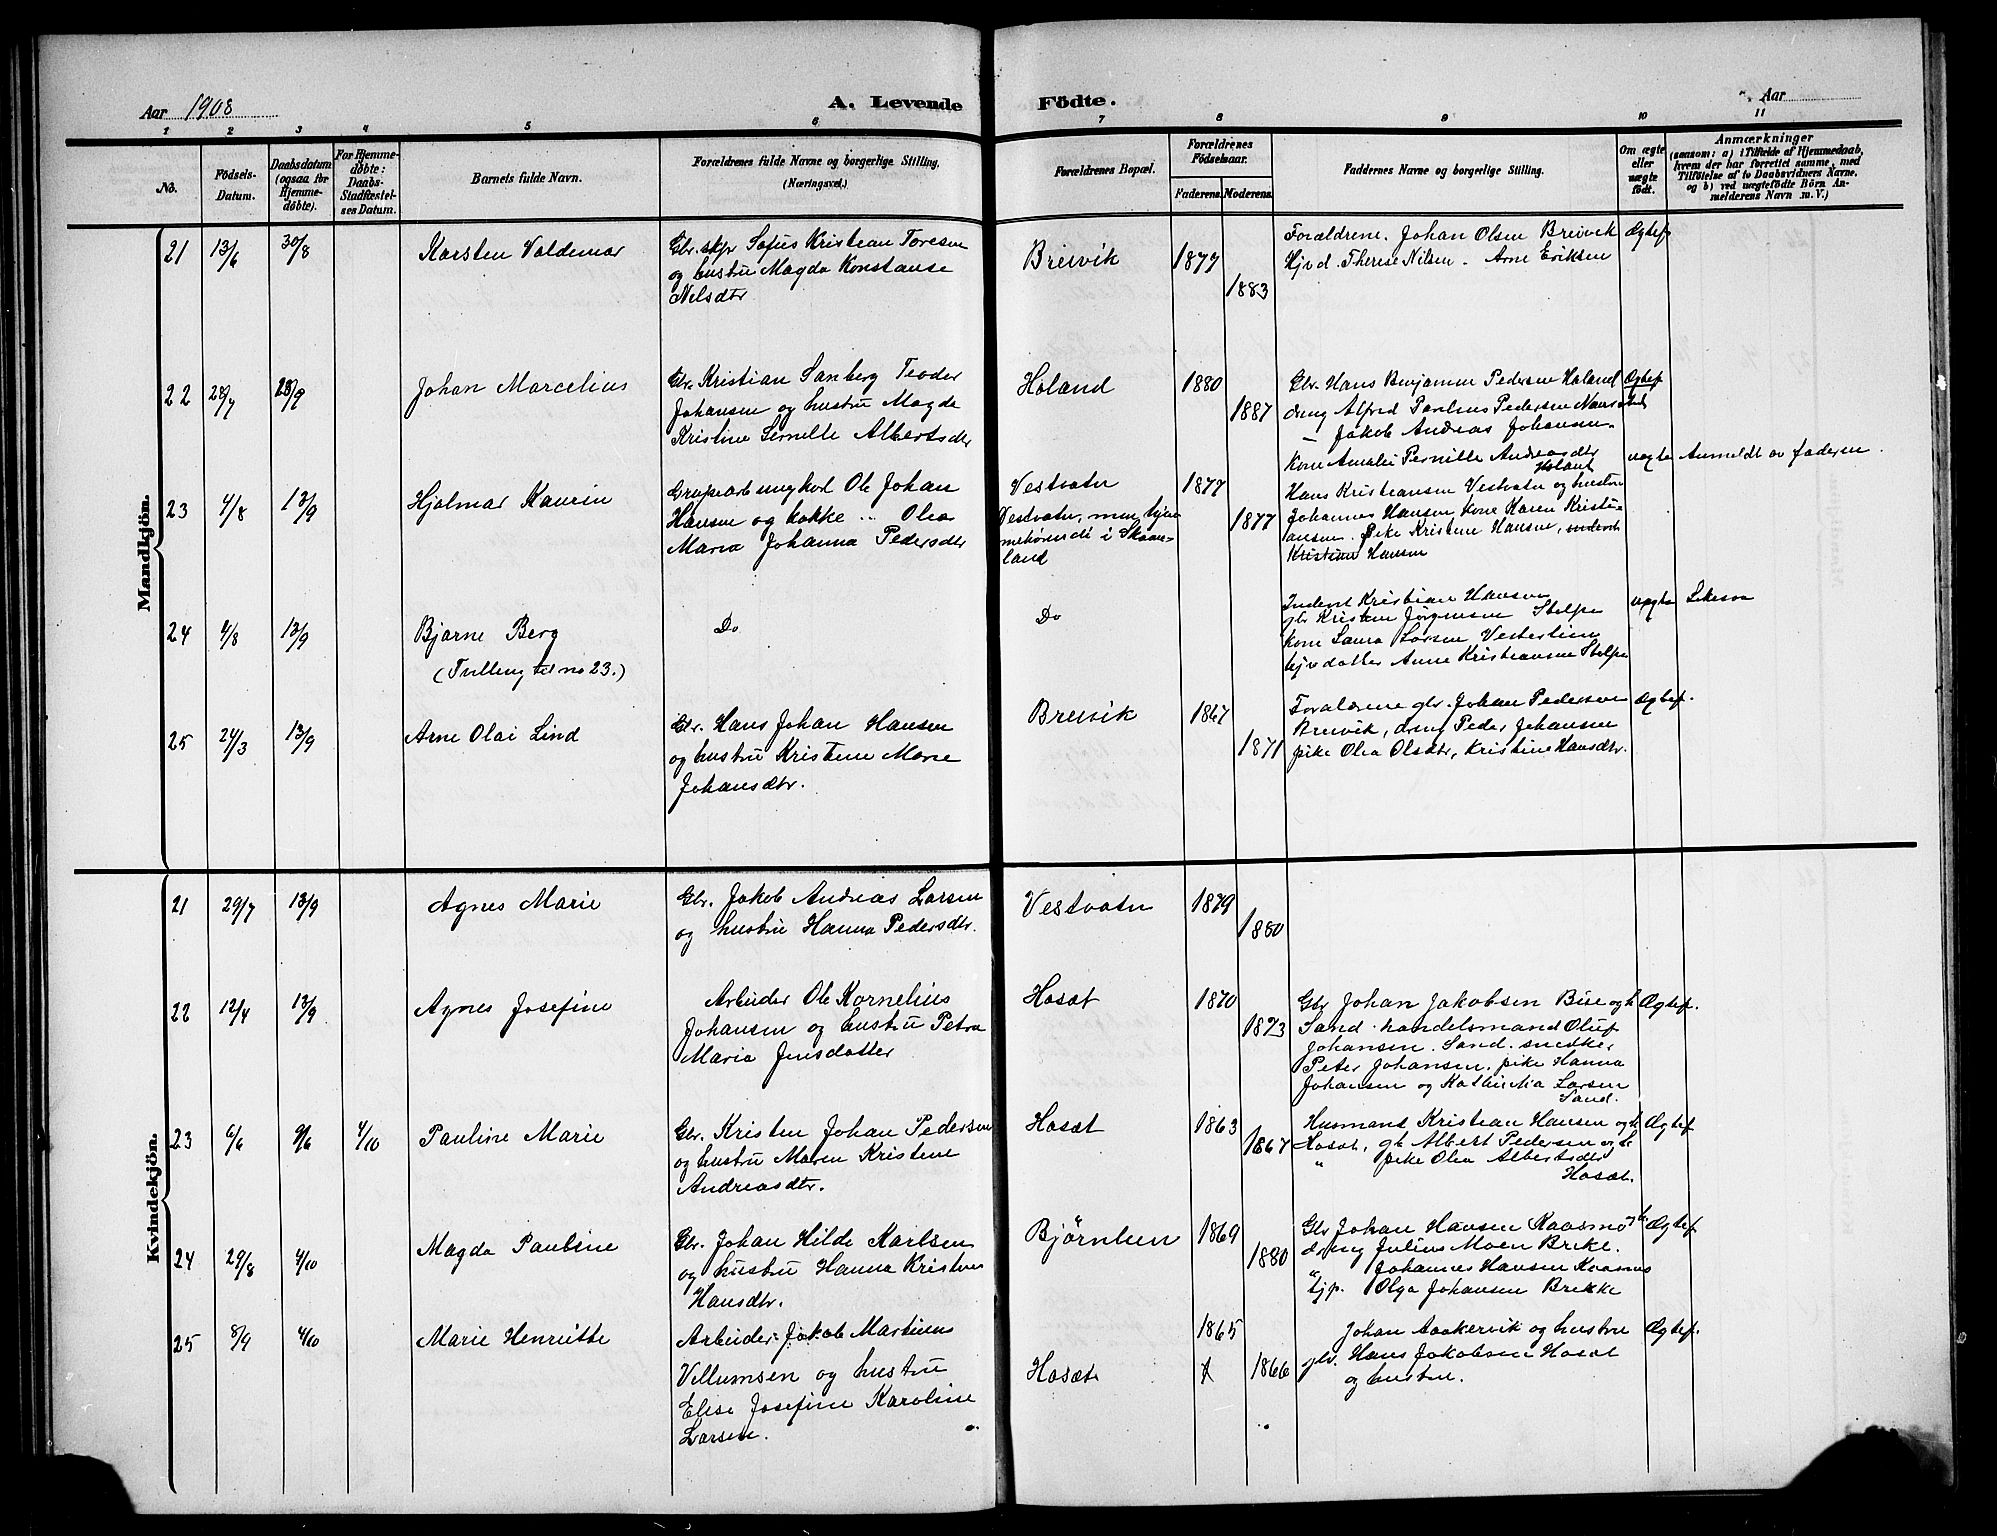 Aar 1908
A. Levende Födte.
Aar
1 2 3 4 5 6 7 8 9 10 11
No.
Födsels-
Datum.
Daabsdatum
(ogsaa for
Hjemme-
döbte).
For Hjemme-
döbte:
Daabs-
Stadfæstel-
ses Datum.
Barnets fulde Navn.
Forældrenes fulde Navne og borgerlige Stilling.
(Næringsvei.)
Forældrenes Bopæl.
Forældrenes
Fødselsaar.
Faderens. Moderens.
Faddernes Navne og borgerlige Stilling.
Om ægte
eller
uægte
födt.
Anmærkninger
(saasom: a) i Tilfælde af Hjemmedaab,
hvem der har forrettet samme, med
Tilföielse af to Daabsvidners Navne,
og b) ved uægtefödte Börn An-
melderens Navn m. V.)
Mandkjön.
21 13/6 30/8 Karsten Valdemar
Gbr. skpr Sofus Kristian Toresen
og hustru Magda Konstanse
Nilsdtr
Breivik 1877 1883
Forældrene. Johan Olsen Breivik
Hjvd. Therese Nilsen. Arne Eriksen
Ægtef
22 28/7 28/9 Johan Marcelius
Gbr. Kristian Sanberg Teoder
Johansen og hustru Magda
Kristine Pernille Albertsdtr
Holand 1880 1887
Gbr. Hans Benjamin Pedersen Holand
dreng Alfred Paulus Pedersen
— Jakob Andreas Johansen
Kone Amalie Pernille Andreasdtr
Holand
Ægtef
23 4/8 13/9 Hjalmar Kaurin
Grubearb ungkarl Ole Johan
Hansen og kokke Olea
Maria Johanna Pedersdtr
Vestvatn
Vestvatn, men hjem
mehørende i Skaan-
land
1877 1877
Hans Kristiansen Vestvatn og hustru
Johannes Hansen kone Karen Kristi-
ansen. Pike Kristine Hansen,
Kristian Hansen
uægte Anmeldt av faderen.
24 4/8 13/9 Bjarne Berg
(Tvilling til no 23.)
Do
Do
Inderst Kristian Hansen
gbr Kristen Jørgensen Stolpe
kone Laura Larsen
hjv datter Anne Kristiansen Stolpe
uægte Likesaa
25 24/3 13/9 Arne Olai Lind
Gbr. Hans Johan Hansen
og hustru Kristine Marie
Johansdtr.
Breivik 1867 1871
Forældrene gbr. Johan Pedersen
Breivik, dreng Peder Johansen
pike Olea Olsdtr, Kristine Hansdtr.
Ægtef.
Kvindekjön.
21 29/7 13/9 Agnes Marie
Gbr. Jakob Andreas Larsen
og hustru Hanna Pedersdtr.
Vestvatn 1879 1880
22 12/4 13/9 Agnes Josefine
Arbeider Ole Kornelius
Johansen og hustru Petra
Maria Jensdatter
Hosæt 1870 1873
Gbr Johan Jakobsen og h
Sand. handelsmand Oluf
Johansen. Sand. snedker
Peter Johansen, pike Hanna
Johansen og Larsen
Sand.
Ægtef.
23 6/6 9/6 4/10 Pauline Marie
Gbr. Kristen Johan Pedersen
og hustru Maren Kristine
Andreasdtr.
Hosæt 1863 1867
Husmand Kristian Hansen og h
Hosæt, gb Albert Pedersen og h.
" pike Olea Albertsdtr
Hosæt.
Ægtef
24 29/8 4/10 Magda Pauline
Gbr. Johan Hilde Karlsen
og hustru Hanna Kristine
Hansdtr.
Bjørnlien 1869 1880
Gbr Johan Hansen Kaasmo
dreng Julius Moen Brække.
" Johannes Hansen Kaasmo
tjp. Olga Johansen Brekke
Ægtef
25 8/9 4/10 Marie Henriette
Arbeider Jakob Martinus
Villumsen og hustru
Elise Josefine Karoline
Larsen.
Hosæt
1865 1866
Johan Aakervik og hustru
gbr. Hans Jakobsen Hosæt
og hustru.
Ægtef.